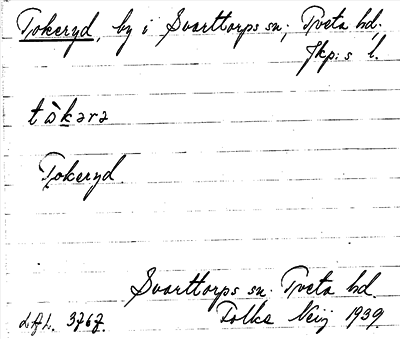 Tokeryd, by i Svarttorps sn, Tveta hd.
Jkp:s l.
tòkərə
Tokeryd.
Svarttorps sn. Tveta hd.
LAL. 3767. Folke Neij 1939.